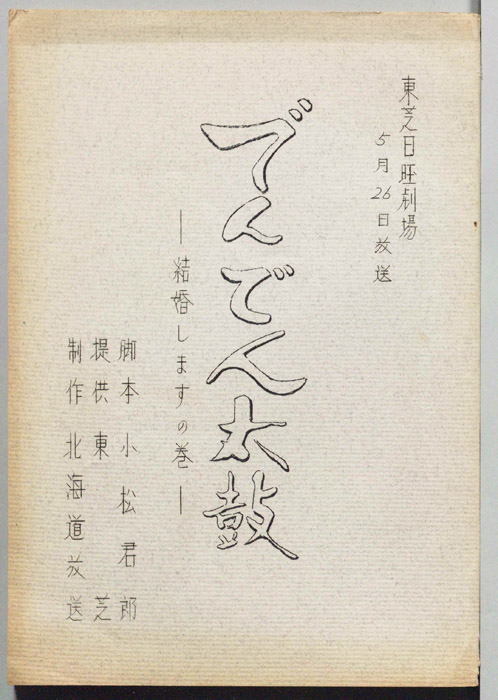 東芝日曜劇場
5月26日放送
でんでん太鼓
―結婚しますの巻―
脚本 小松君郎
提供 東芝
制作 北海道放送